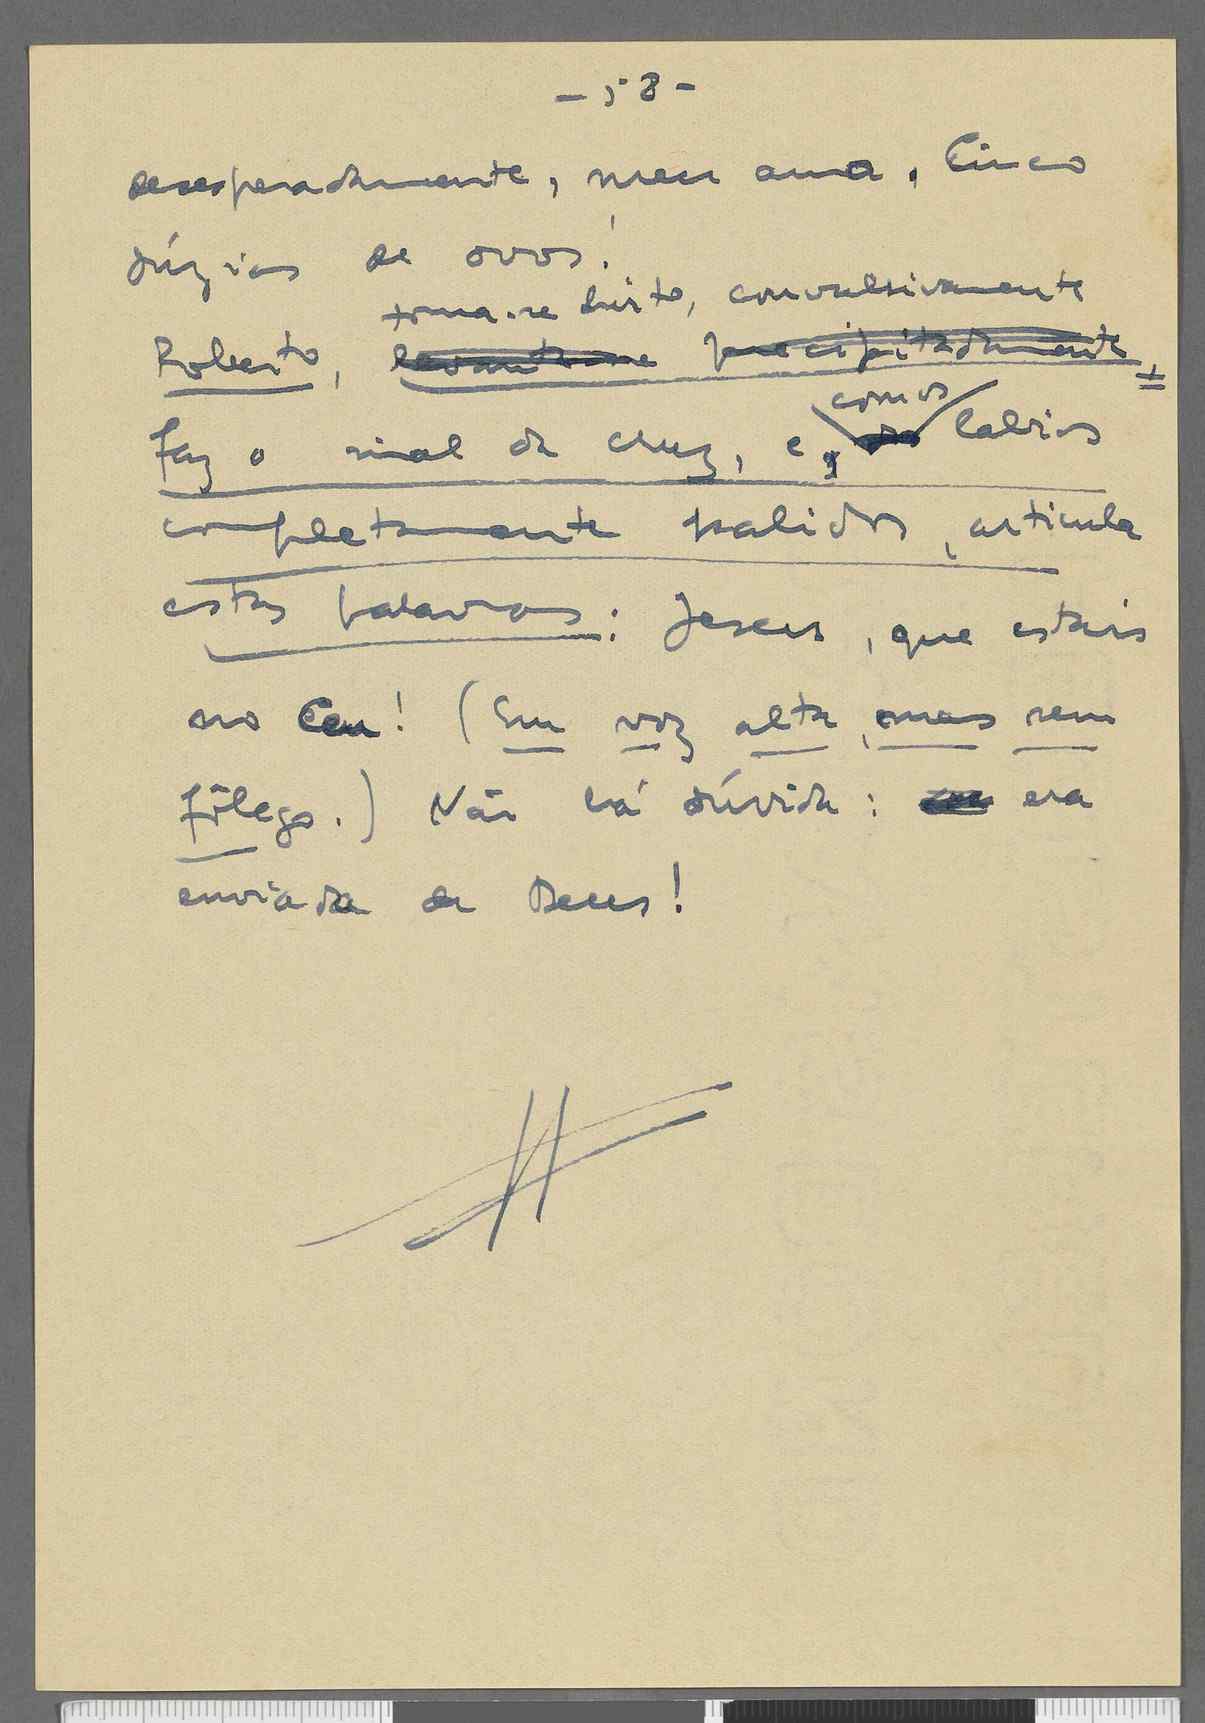 - 58 -
desesperadamente, meu amo. Cinco
dúzias de ovos!
torna-se hirto, convulsivamente
Roberto, levanta-se precipitadamente,
faz o sinal da cruz, e, com os labios
completamente palidos, articula
estas palavras: Jesus, que estais
no Ceu! (Em voz alta, mas sem
fôlego.) Não há dúvida: era
enviada de Deus!